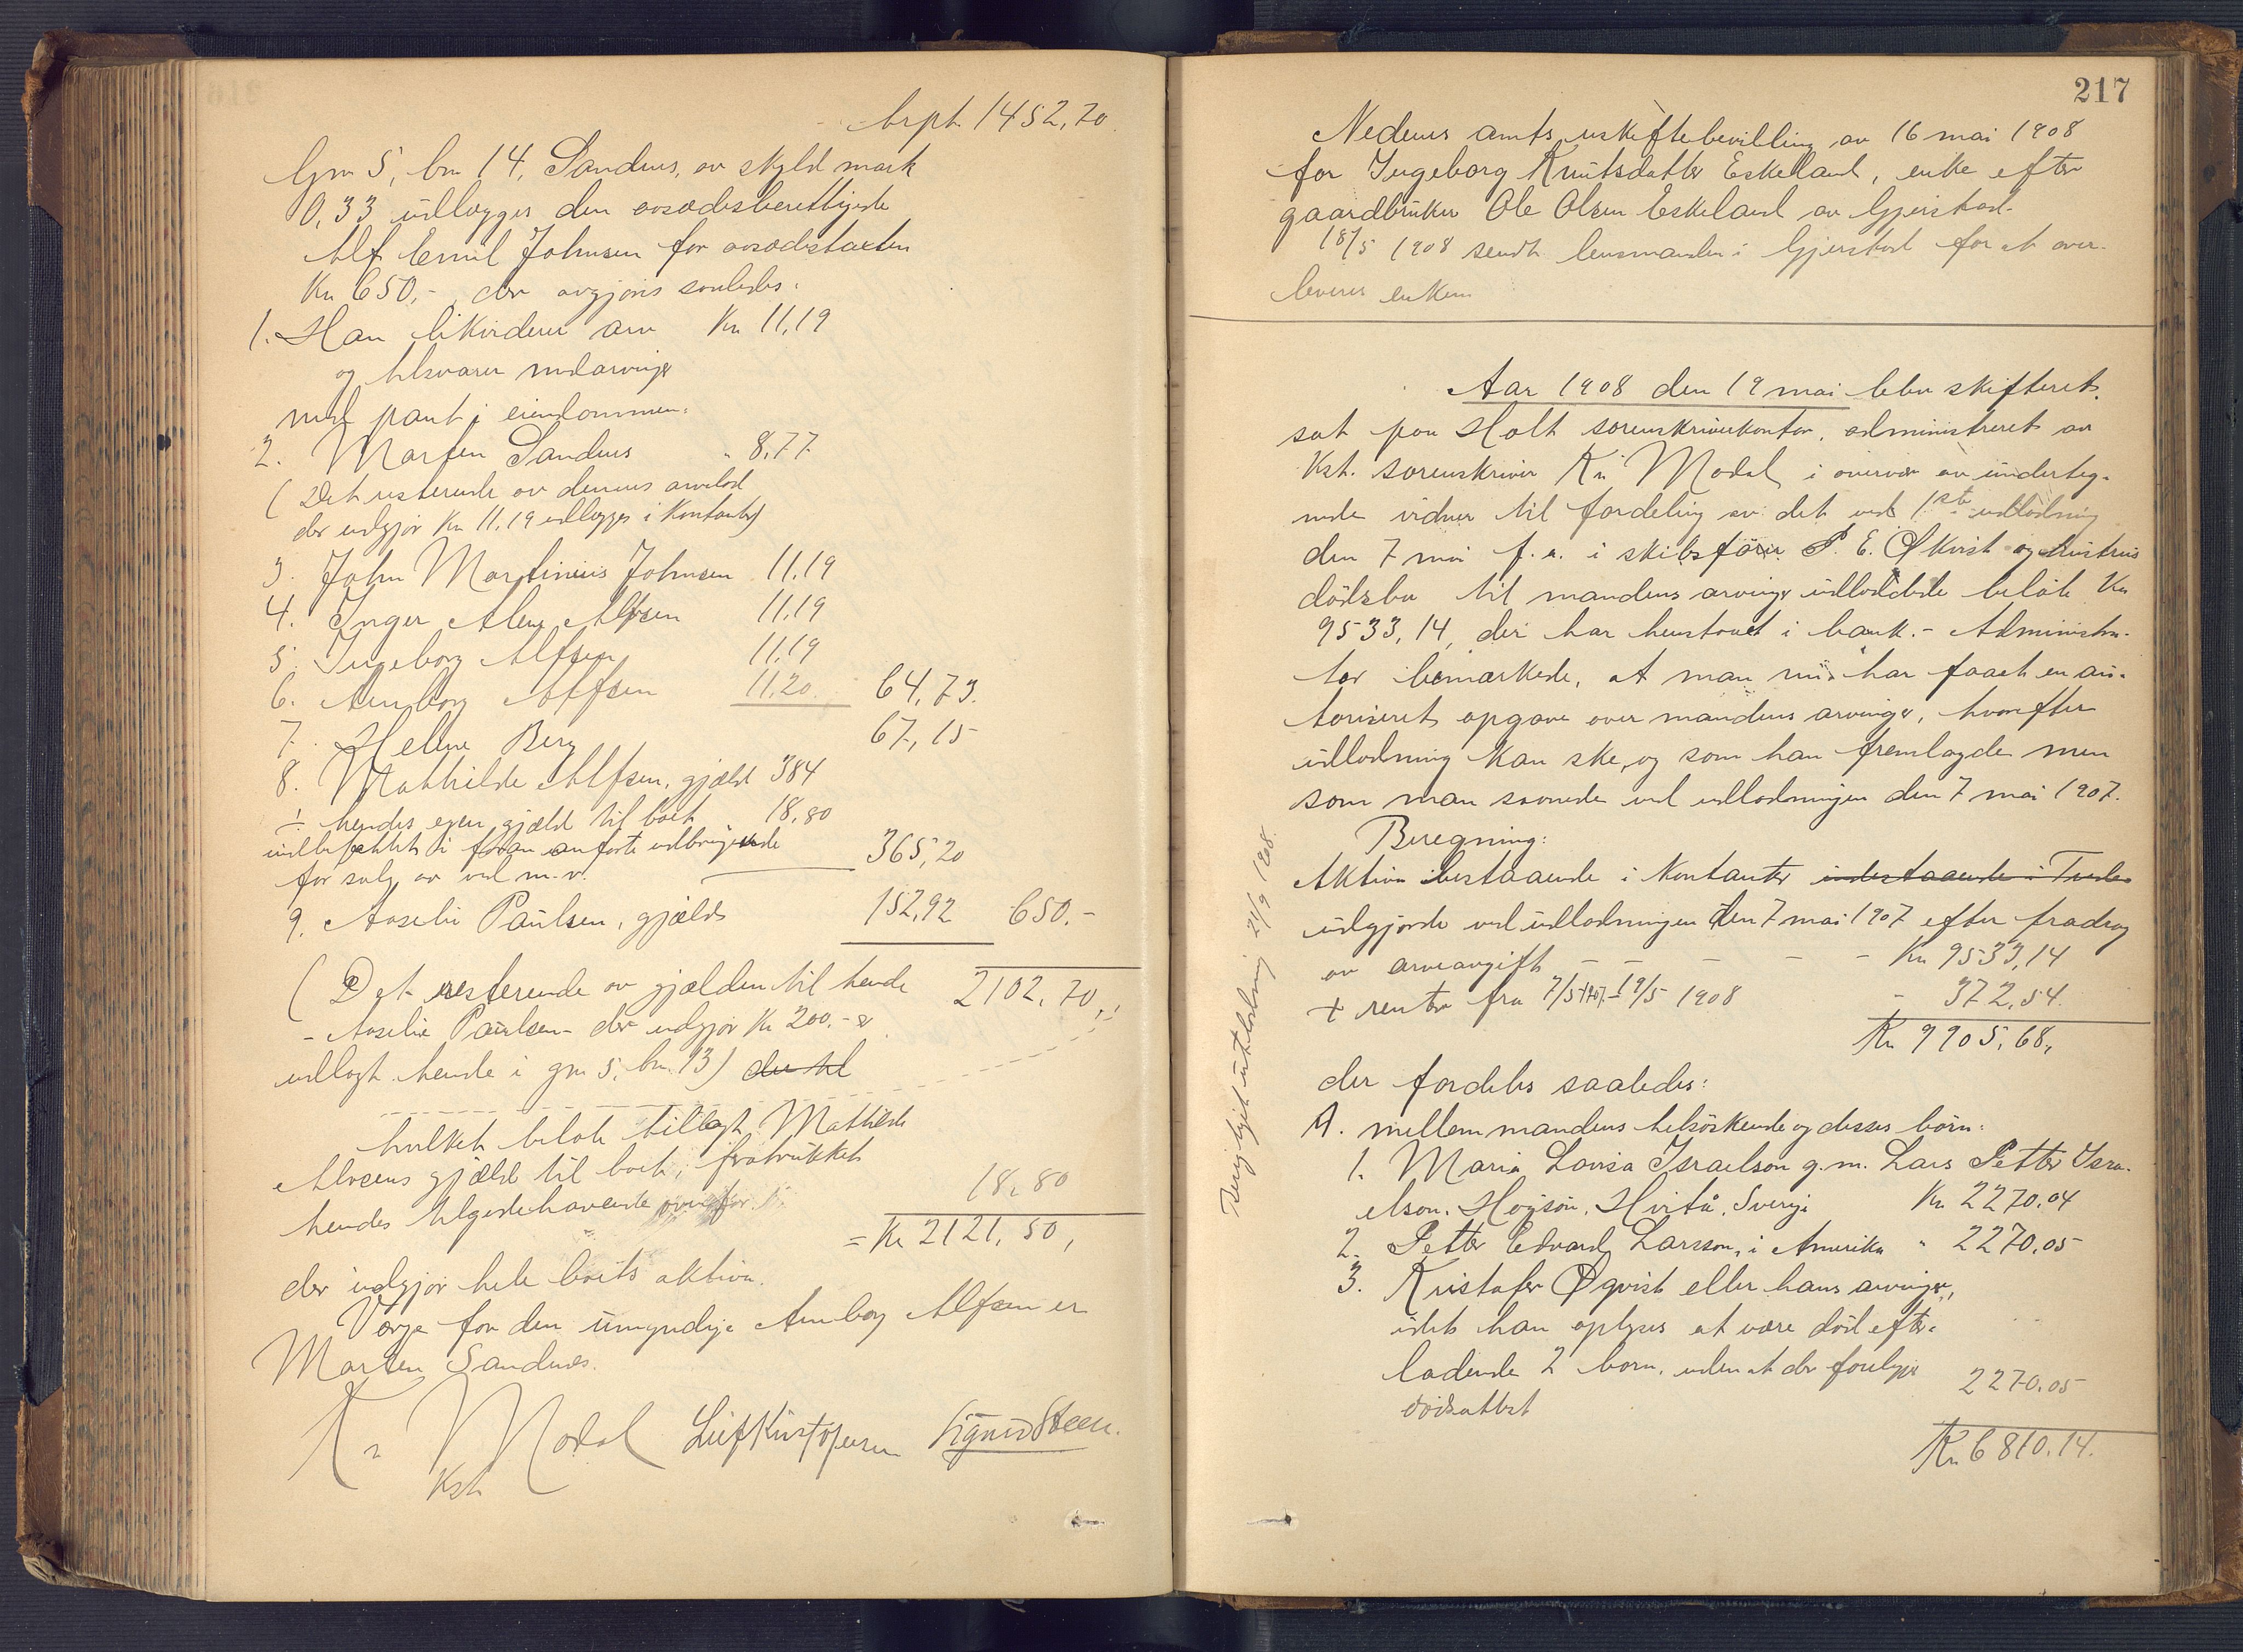 Trspt. 1452,70.
Gm 5, bn 14, Sandnes, av skyld mark
0,33 udlægges den aasædesberettigede
Alf Emil Johnsen for aasædestaxten
Kr 650,-, der avgjøres saaledes:
1. Han likviderer arv Kr 11,19
og tilsvarer medarvinger
med pant i eiendommen:
2. Marten Sandnes " 8,77
(Det resterende av dennes arvelod
der udgjør Kr 11,19 udlægges i Kontanter)
3. John Martinius Johnsen 11,19
4. Inger Alene Alfsen 11,19
5. Ingeborg Alfsen 11,19
6. Annborg Alfsen 11,20 64,73.
7. Helene Berg 67,15
8. Mathilde Alfsen, gjæld 384
÷ hendes egen gjæld til boet 18,80
indbefattet i foran anførte udbringende
for salg av ved m.v. 365,20
9. Aaselie Paulsen, gjæld 152,92 650.-
2102,70,
(Det resterende av gjælden til hende
- Aaselie Paulsen - der udgjør Kr 200.- er
udlagt hende i gm 5, bn 13) der til
hvilket beløb tillagt Mathilde
Alfsens gjæld til boet, fratrukket
hendes tilgodehavende ovenfor 18,80
= Kr 2121,50,
der udgjør hele boets aktiva.
Værge for den umyndige Annborg Alfsen er
Marten Sandnes.
Kr Modal Leif Kristofersen Sigurd Steen.
Kst.
217
Nedenes amts uskiftebevilling av 16 mai 1908
for Ingeborg Knutsdatter Eskeland, enke efter
gaardbruker Ole Olsen Eskeland av Gjerstad.
18/5 1908 sendt lensmanden i Gjerstad for at over-
leveres enken.
Aar 1908 den 19 mai blev skifteret
sat paa Holt sorenskriverkontor, administreret av
Kst. sorenskriver Kr Modal i overvær av underteg-
nede vidner til fordeling av det ved 1ste udlodning
den 7 mai f.a. i skibsfører P. E. Økvist og hustrus
dødsbo til mandens arvinger udloddede beløb Kr
9533,14, der har henstaaet i bank. - Administra-
tor bemærkede, at man nu har faaet en au-
toriseret opgave over mandens arvinger, hvorefter
udlodning kan ske, og som han fremlagde men
som man savnede ved udlodningen den 7 mai 1907.
Beregning:
Aktiva bestaaende i Kontanter indestaaende i
udgjorde ved udlodningen den 7 mai 1907 efter fradrag
av arveavgift - - - - - Kr 9533,14
+ renter fra 7/5 1907 - 19/5 1908 - 372,54.
Kr 9905,68,
der fordeles saaledes:
A. mellem mandens helsøskende og disses børn:
1. Maria Lovisa Israelson g.m. Lars Petter Isra-
elson, Hogsön, Hvitå, Sverige Kr 2270.04
2. Petter Edvard Larsson, i Amerika " 2270.05
3. Kristofer Øqvist eller hans arvinger,
idet han oplyses at være død efter-
ladende 2 børn, uden at der foreligger
dødsattest 2270.05
Kr. 6810.14.
Berigtiget utlodning 21/9 1908.